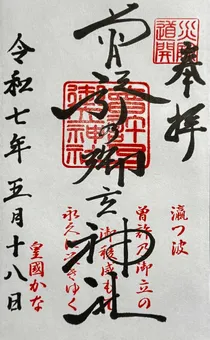 奉拝
曽許乃御立神社
令和七年五月十八日
瀛つ波
曽許乃御立の
御稜威もて
永久にさきゆく
皇國かな